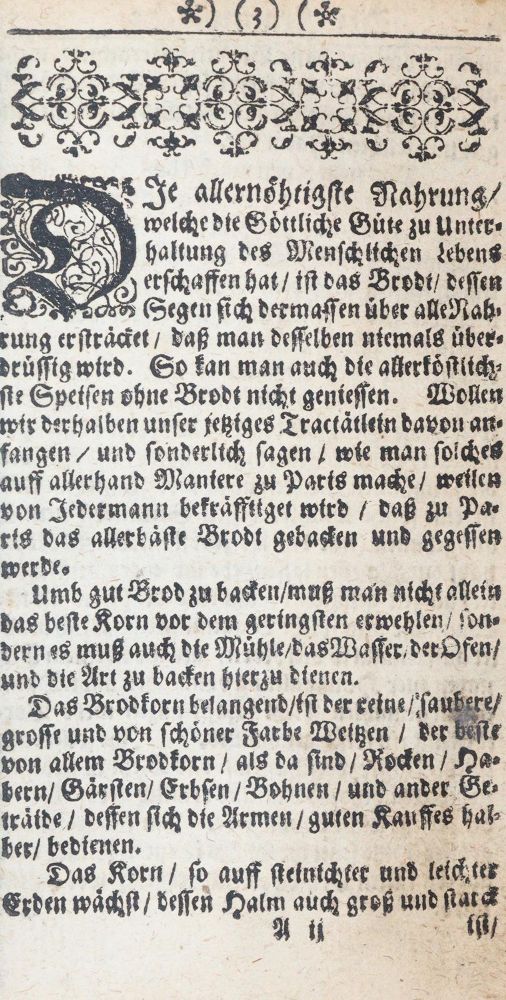 *) (3) (*
DJe allernöhtigste Nahrung/
welche die Göttliche Güte zu Unter-
haltung des Menschlichen Lebens
erschaffen hat / ist das Brodt / dessen
Segen sich dermassen über alle Nah-
rung ersträcket / daß man desselben niemals über-
drüssig wird. So kan man auch die allerköstlich-
ste Speisen ohne Brodt nicht geniessen. Wollen
wir derhalben unser jetziges Tractätlein davon an-
fangen / und sonderlich sagen / wie man solches
auff allerhand Maniere zu Paris mache / weilen
von Jedermann bekräfftiget wird / daß zu Pa-
ris das allerbäste Brodt gebacken und gegessen
werde.
Umb gut Brod zu backen/muß man nicht allein
das beste Korn vor dem geringsten erwehlen/ son-
dern es muß auch die Mühle/das Wasser/der Ofen/
und die Art zu backen hierzu dienen.
Das Brodkorn belangend/ist der reine/saubere/
grosse und von schöner Farbe Weitzen / der beste
von allem Brodkorn / als da sind / Rocken / Ha-
bern/ Gärsten/ Erbsen/ Bohnen / und ander Ge-
träide / dessen sich die Armen / guten Kauffes hal-
ber/ bedienen.
Das Korn / so auff steinichter und leichter
Erden wächst / dessen Halm auch groß und starck
A ij ist/